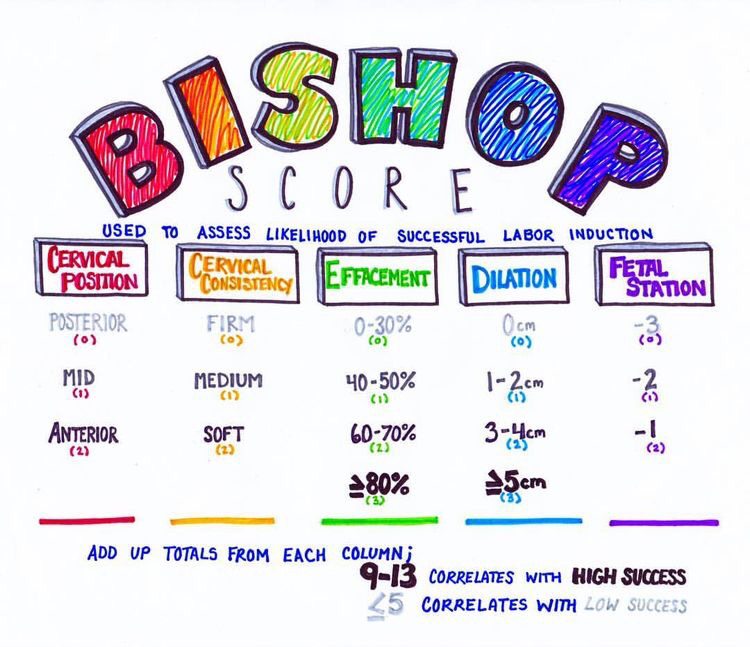 BISHOP
SCORE
USED TO ASSESS LIKELIHOOD OF SUCCESSFUL LABOR INDUCTION
CERVICAL POSITION
CERVICAL CONSISTENCY
EFFACEMENT
DILATION
FETAL STATION
POSTERIOR FIRM 0-30% 0cm -3
(0) (0) (0) (0) (0)
MID MEDIUM 40-50% 1-2cm -2
(1) (1) (1) (1) (1)
ANTERIOR SOFT 60-70% 3-4cm -1
(2) (2) (2) (2) (2)
≥80% ≥5cm
(3) (3)
ADD UP TOTALS FROM EACH COLUMN;
9-13 CORRELATES WITH HIGH SUCCESS
≤5 CORRELATES WITH LOW SUCCESS